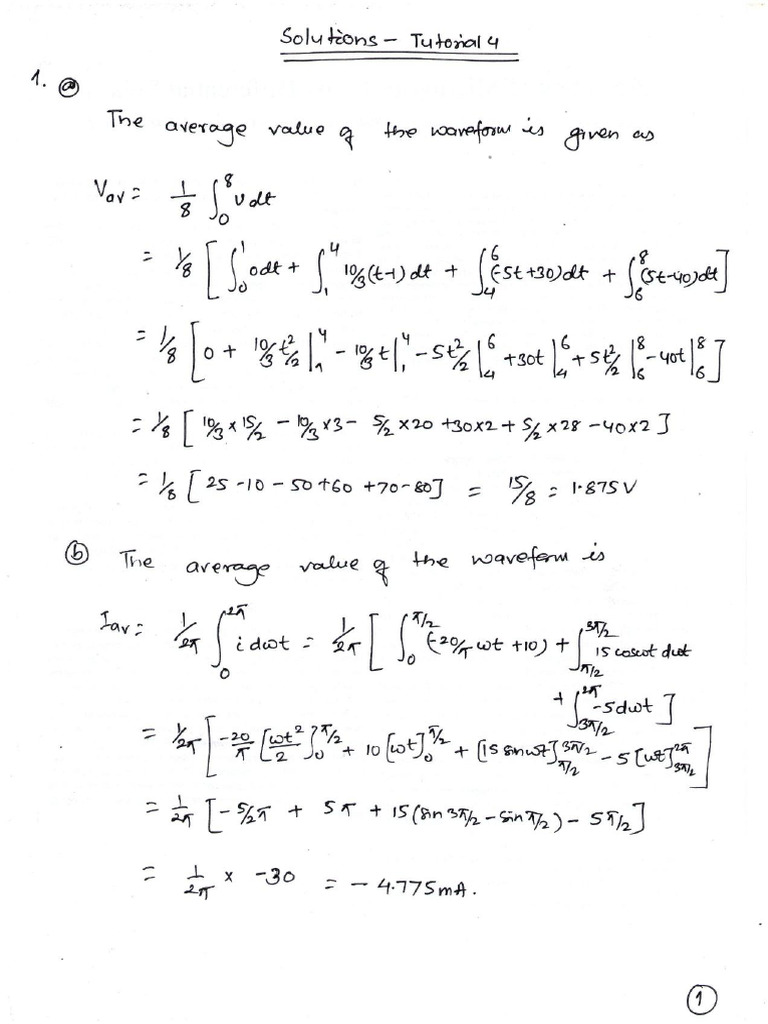 Solutions - Tutorial 4
1. ⓐ
The average value of the waveform is given as
Vav = 1/8 ∫₀⁸ v dt
= 1/8 [ ∫₀¹ 0dt + ∫₁⁴ 10/3(t-1) dt + ∫₄⁶ (-5t+30)dt + ∫₆⁸ (5t-40)dt ]
= 1/8 [ 0 + 10/3 t²/2 |₁⁴ - 10/3 t |₁⁴ - 5t²/2 |₄⁶ + 30t |₄⁶ + 5t²/2 |₆⁸ - 40t |₆⁸ ]
= 1/8 [ 10/3 × 15/2 - 10/3 × 3 - 5/2 × 20 + 30×2 + 5/2 × 28 - 40×2 ]
= 1/8 [ 25 - 10 - 50 + 60 + 70 - 80 ] = 15/8 = 1.875V
ⓑ The average value of the waveform is
Iav = 1/2π ∫₀^2π i dωt = 1/2π [ ∫₀^π/2 (-20/π ωt + 10) + ∫_π/2^3π/2 15 cosωt dωt
+ ∫_3π/2^2π -5dωt ]
= 1/2π [ -20/π [ωt²/2]₀^π/2 + 10 [ωt]₀^π/2 + [15 sinωt]_π/2^3π/2 - 5 [ωt]_3π/2^2π ]
= 1/2π [ -5/2π + 5π + 15 (sin 3π/2 - sin π/2) - 5π/2 ]
= 1/2π × -30 = - 4.775mA.
①